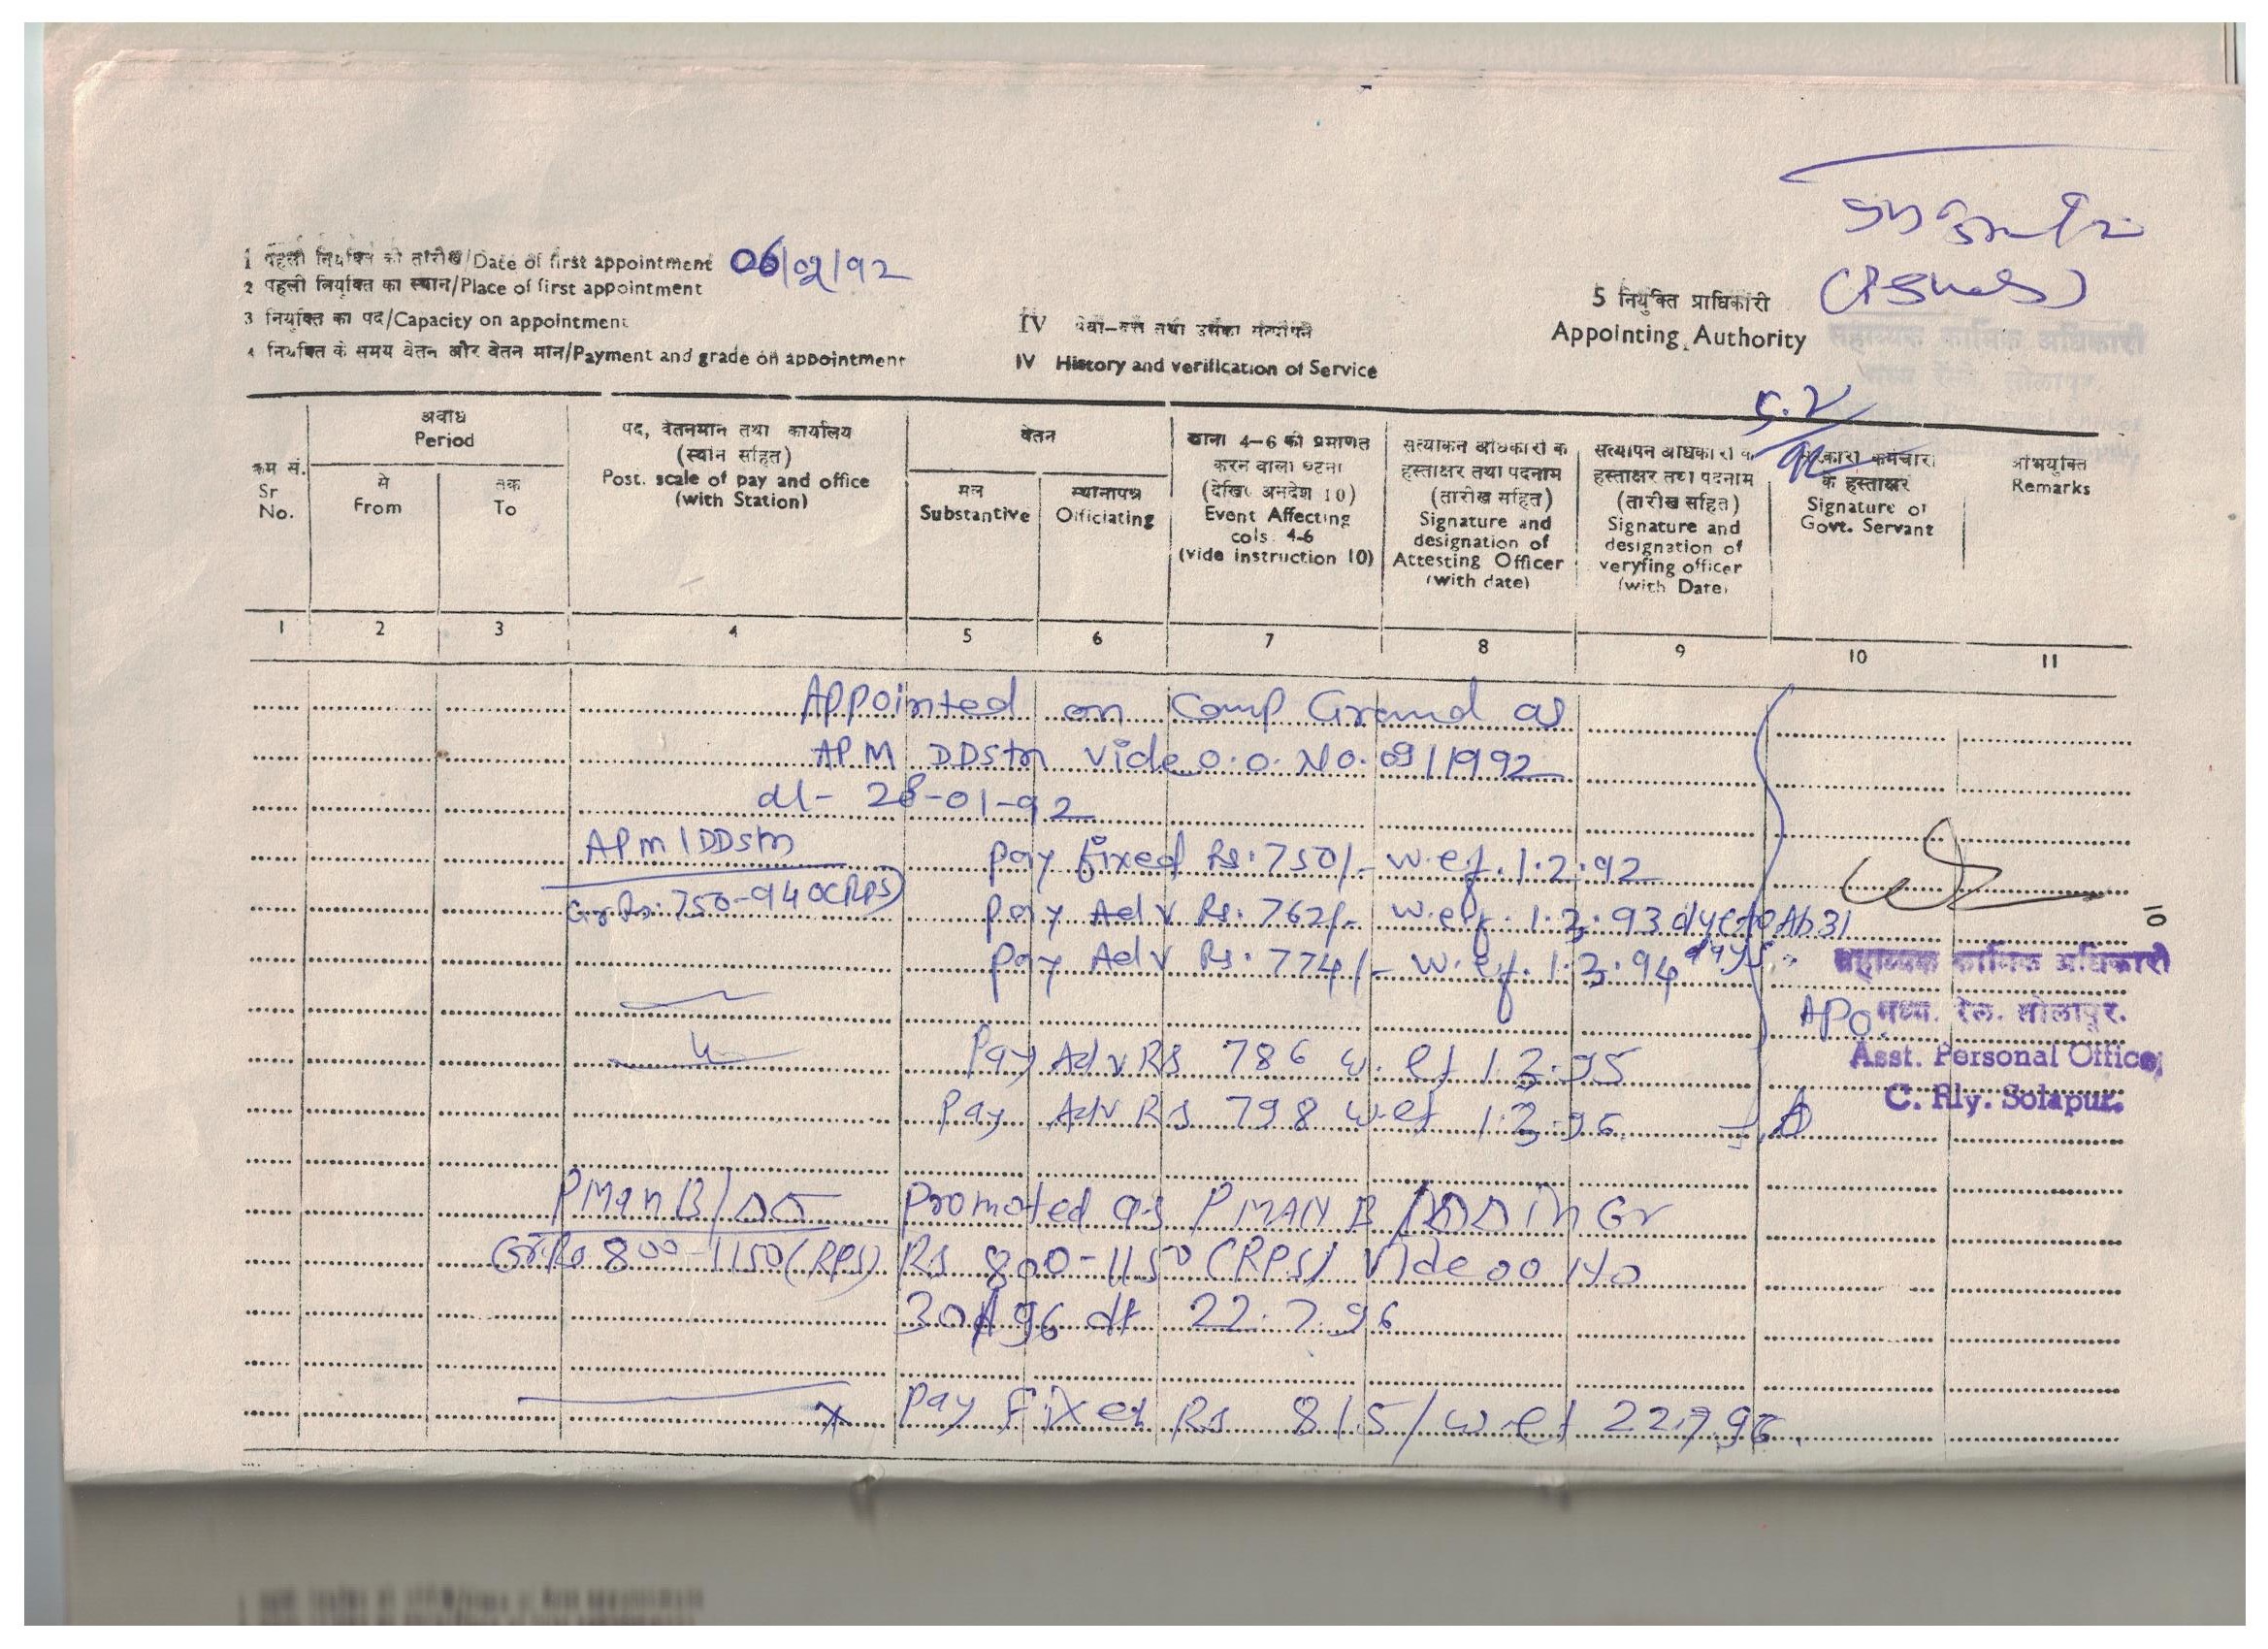 1 पहली नियुक्ति की तारीख/Date of first appointment 06/02/92
2 पहली नियुक्ति का स्थान/Place of first appointment
3 नियुक्ति का पद/Capacity on appointment
4 नियुक्ति के समय वेतन और वेतन मान/Payment and grade on appointment
IV सेवा-वृत्त तथा उसका सत्यापन
IV History and verification of Service
5 नियुक्ति प्राधिकारी
Appointing Authority
सहाय्यक कार्मिक अधिकारी
मध्य रेल. सोलापूर.
क्रम सं. Sr No.
अवधि Period
से From
तक To
पद, वेतनमान तथा कार्यालय (स्थान सहित) Post. scale of pay and office (with Station)
वेतन
मूल Substantive
स्थानापन्न Officiating
खाना 4-6 को प्रमाणित करने वाली घटना (देखिए अनुदेश 10) Event Affecting cols. 4-6 (vide instruction 10)
सत्यांकन अधिकारी के हस्ताक्षर तथा पदनाम (तारीख सहित) Signature and designation of Attesting Officer (with date)
सत्यापन अधिकारी के हस्ताक्षर तथा पदनाम (तारीख सहित) Signature and designation of veryfing officer (with Date)
सरकारी कर्मचारी के हस्ताक्षर Signature of Govt. Servant
अभियुक्ति Remarks
1 2 3 4 5 6 7 8 9 10 11
Appointed on Comp Ground as
APM DDSTM Vide O.O. No. 09/1992
dt- 28-01-92
APM/DDSTM pay fixed Rs. 750/- w.e.f. 1.2.92
Gr Rs. 750-940(RPS) pay Adv Rs. 762/- w.e.f. 1.3.93 due to Ab 31 days.
pay Adv Rs. 774/- w.e.f. 1.3.94
Pay Adv Rs 786 w.ef 1.3.95
Pay Adv Rs 798 w.ef 1.3.96
10
सहाय्यक कार्मिक अधिकारी
APO. मध्य. रेल. सोलापूर.
Asst. Personal Officer,
C. Rly. Solapur.
PMan B/DD Promoted as PMAN B/DD in Gr
Gr Rs 800-1150 (RPS) Rs 800-1150 (RPS) Vide OO No
dt 22.7.96
Pay Fixed Rs 815/ w.ef 22.7.96.